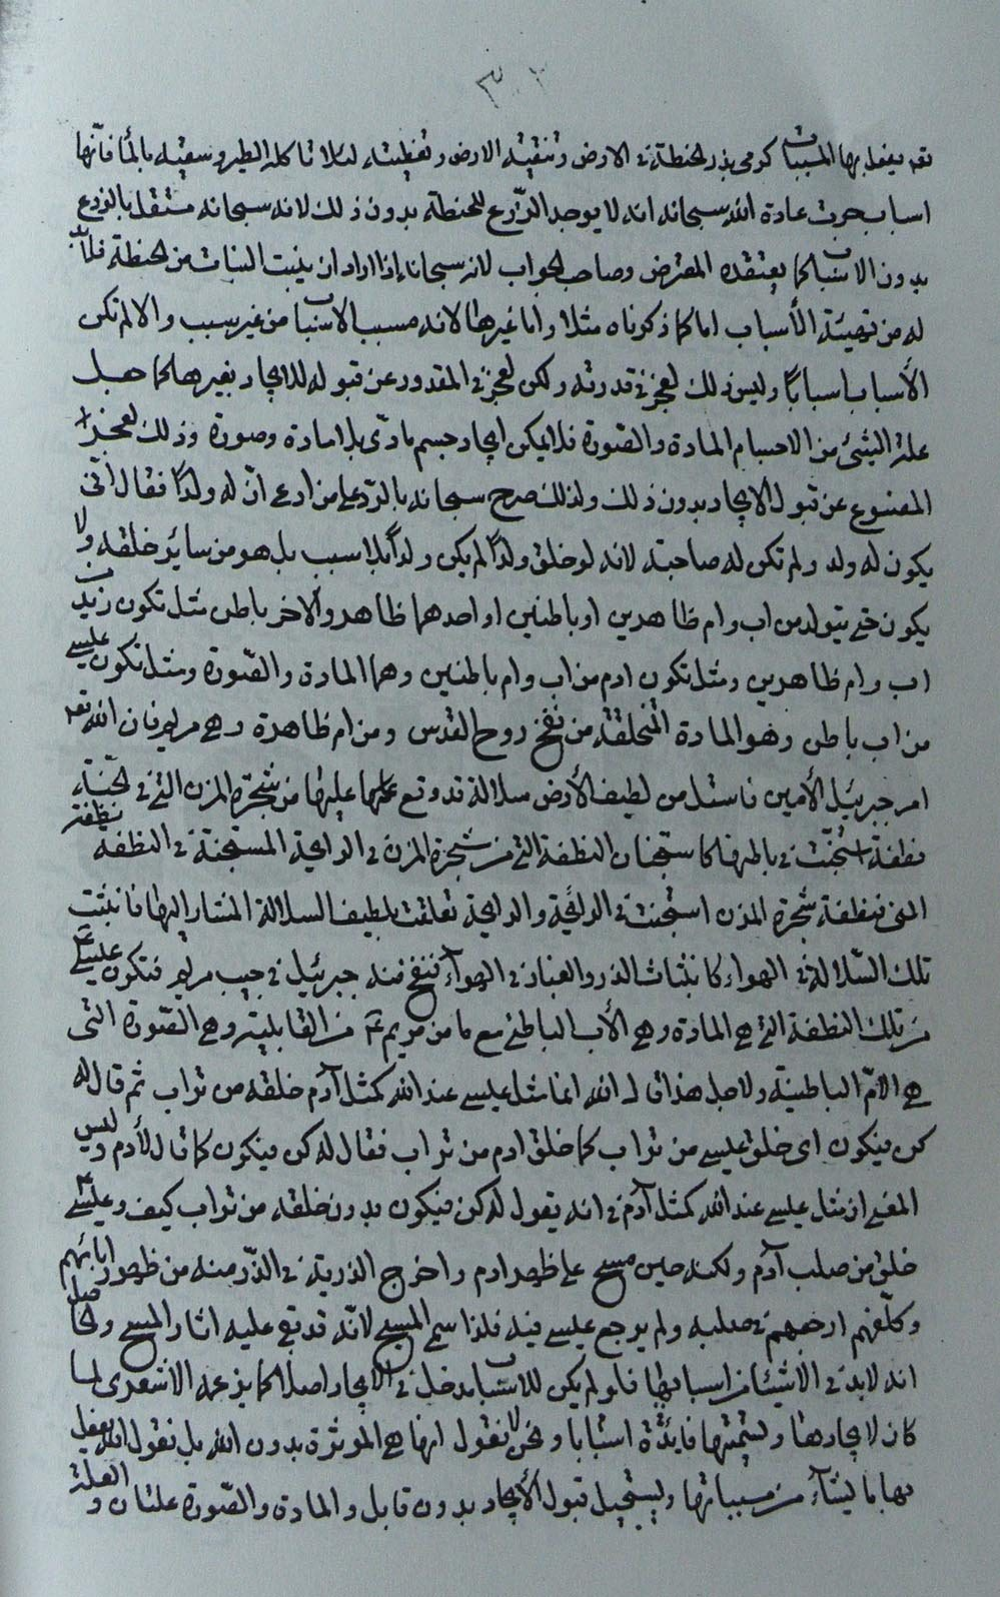 ٣٠٢
تعه يفعل بها المسببات كرمى بذر الحنطة فى الارض وتنقية الارض وتغطيته لئلا تاكله الطير وسقيه بالماء فانها
اسباب جرت عادة الله سبحانه انه لا يوجد الزّرع للحنطة بدون ذلك لانه سبحانه مستقل بالزرع
بدون الاسباب كما يعتقده المعترض وصاحب الجواب لانه سبحانه اذا اراد ان ينبت النبات من الحنطة فلابد
له من تهيئة الأسباب اما كما ذكرناه مثلا واما غيرها لانه مسبب الاسباب من غير سبب والا لم تكن
الأسباب اسبابًا وليس ذلك لعجز فى قدرته ولكن لعجز فى المقدور عن قبوله للايجاد بغيرها كما جعل
علة الشئ من الاجسام المادة والصّورة فلا يمكن ايجاد جسم مادّى بلا مادة وصورة وذلك لعجز
المصنوع عن قبول الايجاد بدون ذلك ولذلك صرح سبحانه بالرّد على من ادعى انّ له ولدًا فقال انّى
يكون له ولد ولم تكن له صاحبة لانه لو خلق ولدًا لم يكن ولدًا بلا سبب بل هو من سائر خلقه ولا
يكون حتى يتولد من اب وام ظاهرين او باطنين او احدهما ظاهر والآخر باطن مثل تكون زيد من
اب وام ظاهرين ومثل تكون ادم من اب وام باطنين وهما المادة والصّورة ومثل تكون عيسى
من اب باطن وهو المادة المتخلقة من نفخ روح القدس ومن ام ظاهرة وهى مريم فان الله تعه
امر جبرئيل الأمين فاستل من لطيف الأرض سلالة قد وقع عليها من شجرة المزن التى فى الجنّة
نطفة استجنّت فى باطنها كما ستجنان النطفة التى من شجرة المزن فى الرايحة المستجنة فى النطفة نطفة
المنى فنطفة شجرة المزن استجنت فى الرائحة والرايحة تعلقت بلطيف السلالة المشار اليها فانبثت
تلك السّلالة فى الهواء كانبثاث الذر والغبار فى الهوآء فنفخ منه جبرئيل فى جيب مريم فتكون عيسى ع
من تلك النطفة التى هى المادة وهى الأب الباطنى مع ما من مريم ع من القابلية وهى الصّورة التى
هى الامّ الباطنية ولاجل هذا قال الله انما مثل عيسى عند الله كمثل آدم خلقه من تراب ثم قال له
كن فيكون اى خلق عيسى من تراب كما خلق ادم من تراب فقال له كن فيكون كما قال لأدم وليس
المعنى ان مثل عيسى عند الله كمثل آدم فى انه يقول له كن فيكون بدون خلقه من تراب كيف وعيسى ع
خلق من صلب آدم ولكنه حين مسح على ظهر ادم واخرج الذرية فى الذّر منه من ظهور ابائهم
وكلّفهم ارجعهم فى صلبه ولم يرجع عيسى فيه فلذا سمى المسيح لانّه قد بقى عليه اثار المسح والحاصل
انه لا بد فى الاشيآء من اسبابها فلو لم يكن للاسباب مدخل فى الايجاد اصلا كما يزعمه الاشعرى لما
كان لايجادها وتسميتها فائدة اسبابا ونحن لا نقول انها هى الموثرة بدون الله بل نقول الله يفعل
بها ما يشآء من مسبباتها ويستحيل قبول الأيجاد بدون قابل والمادة والصّورة علتان والعلة